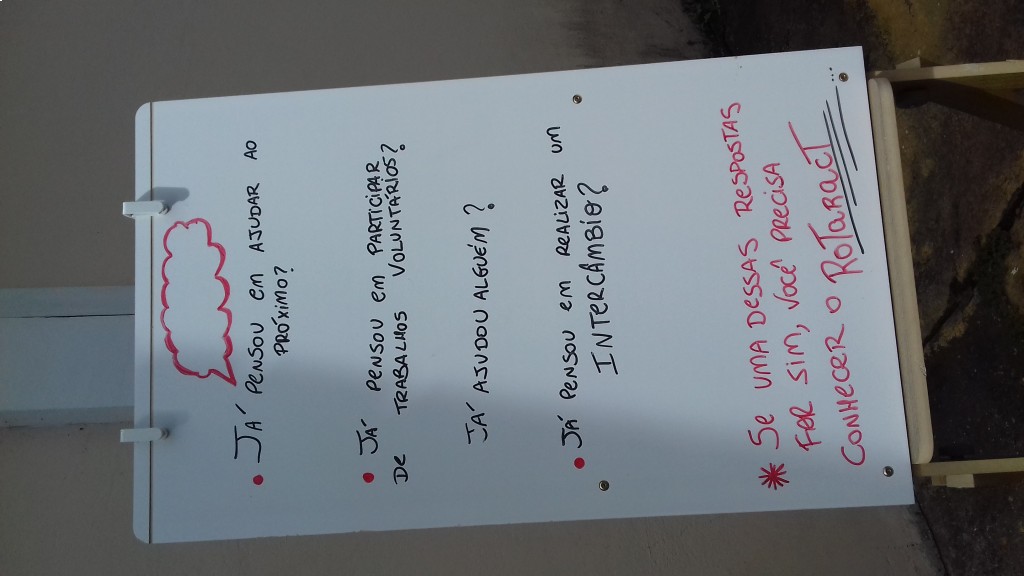 • JÁ PENSOU EM AJUDAR AO
PRÓXIMO?
• JÁ PENSOU EM PARTICIPAR
DE TRABALHOS VOLUNTÁRIOS?
JÁ AJUDOU ALGUÉM?
• JÁ PENSOU EM REALIZAR UM
INTERCAMBIO?
* SE UMA DESSAS RESPOSTAS
FER SIM, VOCÊ PRECISA
CONHECER O ROTARACT...